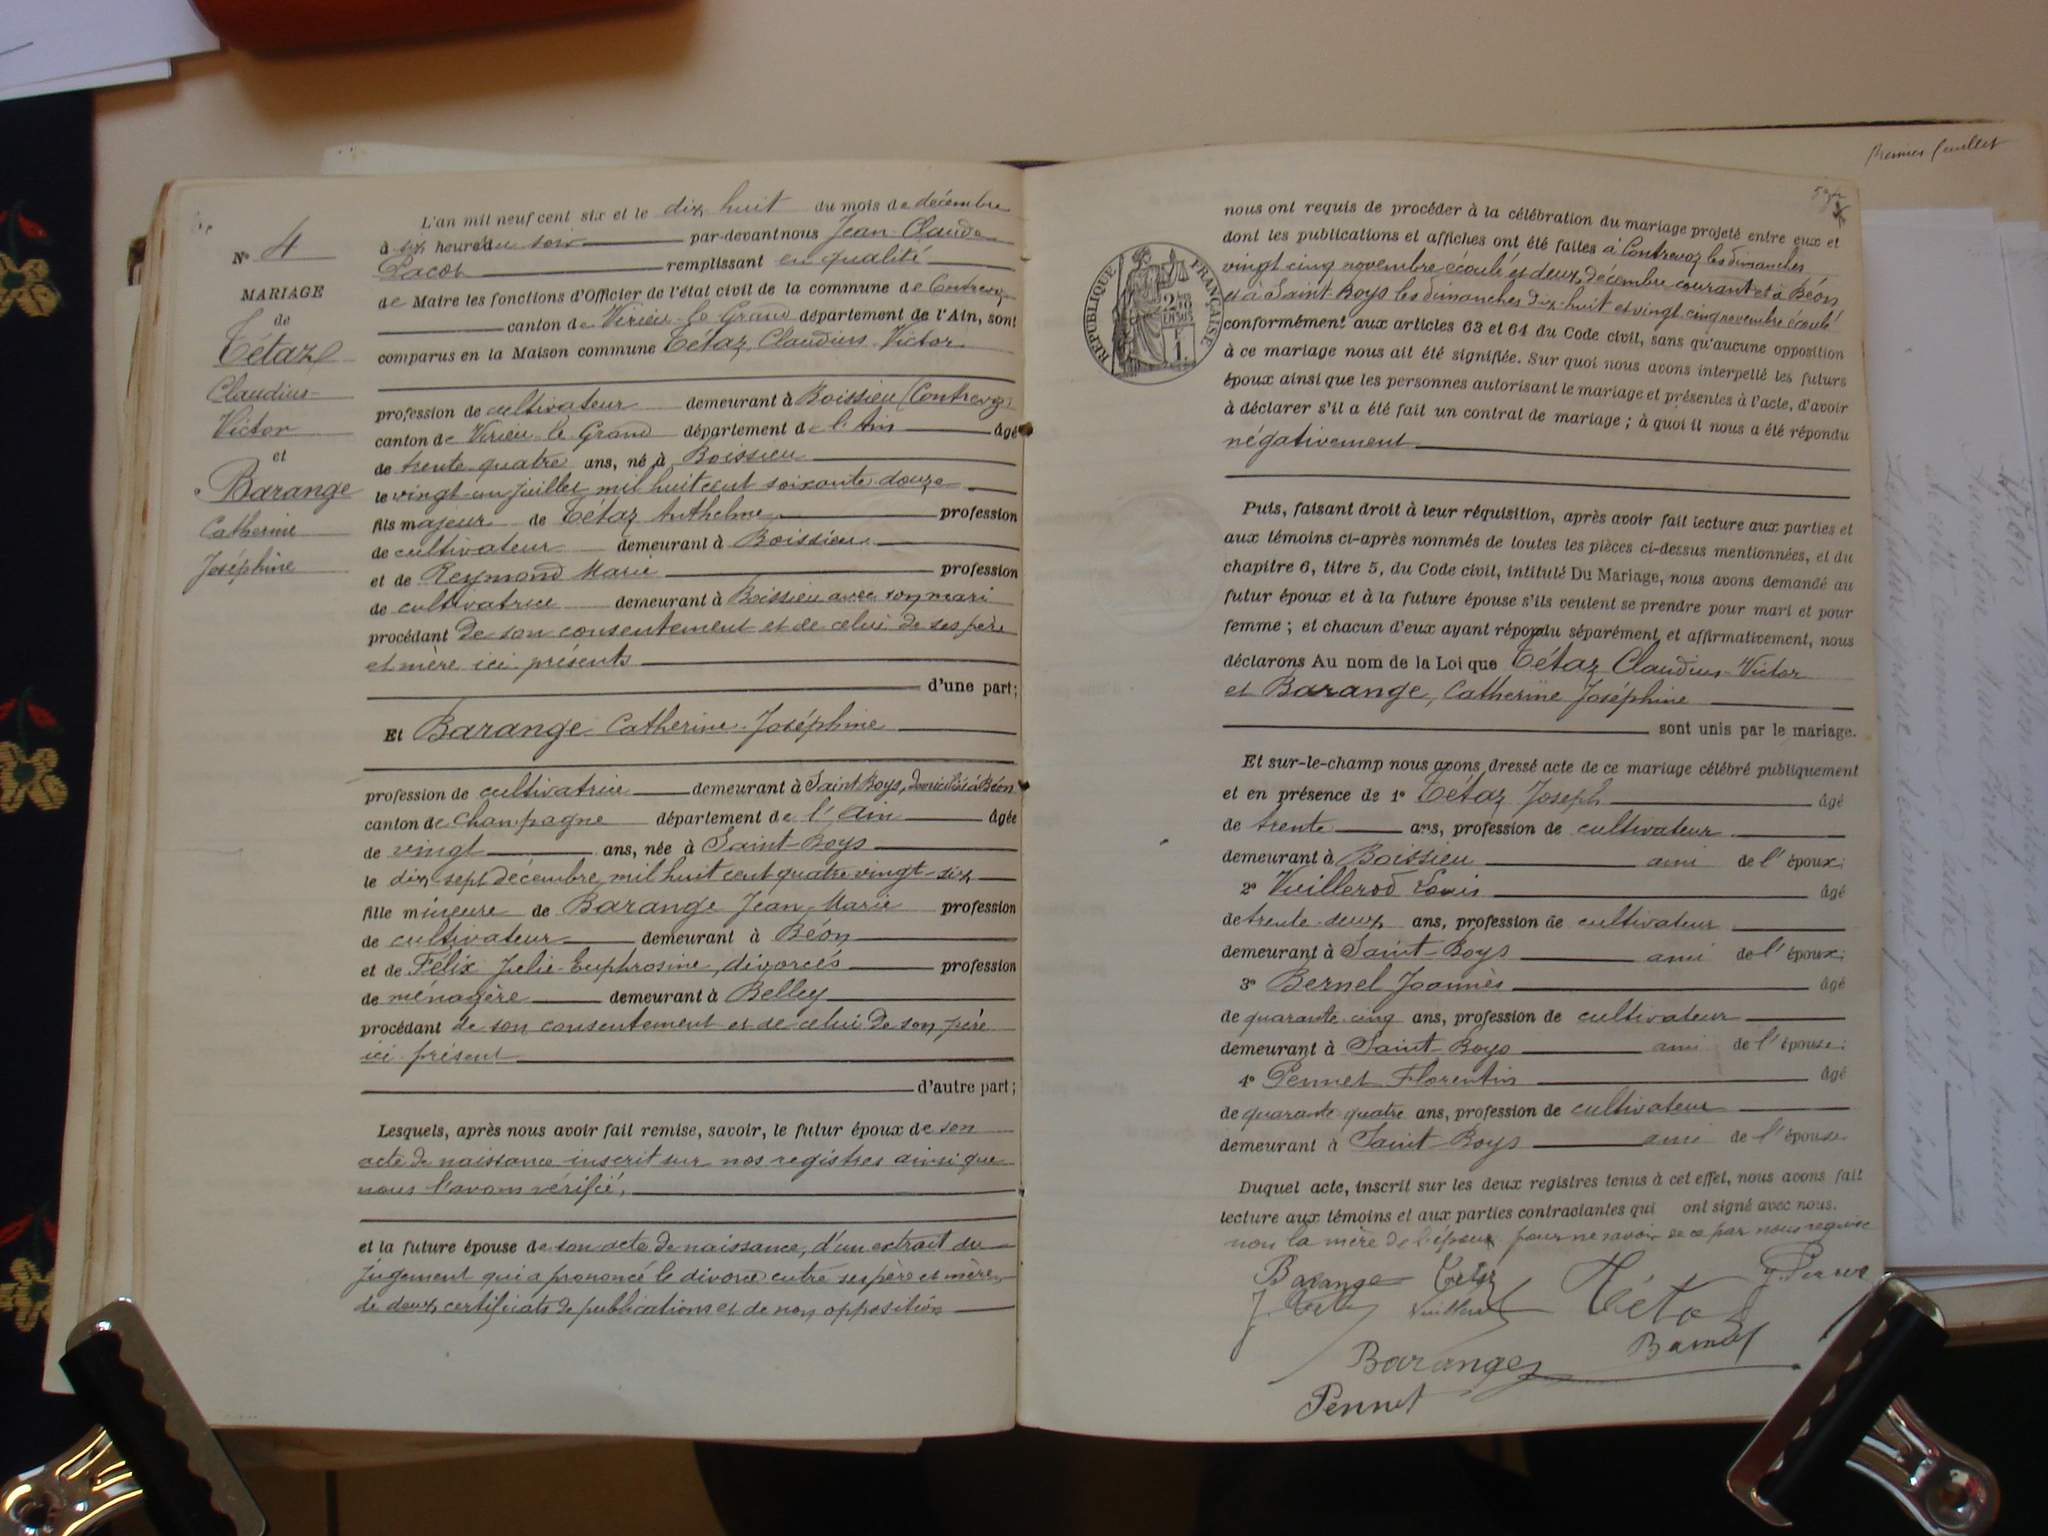 Nº 4
MARIAGE
de
Tétaz
Claudius
Victor
et
Barange
Catherine
Joséphine
L'an mil neuf cent six et le dix huit du mois de décembre
à six heures du soir par-devant nous Jean-Claude
remplissant en qualité
de Maire les fonctions d'Officier de l'état civil de la commune de Contrevoz
canton de Virieu-le-Grand département de l'Ain, sont
comparus en la Maison commune Tétaz Claudius-Victor
profession de cultivateur demeurant à Boissieu (Contrevoz)
canton de Virieu-le-Grand département de l'Ain âgé
de trente quatre ans, né à Boissieu
le vingt-un Juillet mil huit cent soixante douze
fils majeur de Tétaz Anthelme profession
de cultivateur demeurant à Boissieu
et de Reymond Marie profession
de cultivatrice demeurant à Boissieu avec son mari
procédant de son consentement et de celui de ses père
et mère ici présents
d'une part;
Et Barange Catherine-Joséphine
profession de cultivatrice demeurant à Saint-Boys, domiciliée à Béon
canton de Champagne département de l'Ain âgée
de vingt ans, née à Saint-Boys
le dix-sept décembre mil huit cent quatre vingt-six
fille mineure de Barange Jean-Marie profession
de cultivateur demeurant à Béon
et de Félix Julie-Euphrosine, divorcés profession
de ménagère demeurant à Belley
procédant de son consentement et de celui de son père
ici présent
d'autre part;
Lesquels, après nous avoir fait remise, savoir, le futur époux de son
acte de naissance inscrit sur nos registres ainsi que
nous l'avons vérifié,
et la future épouse de son acte de naissance, d'un extrait du
jugement qui a prononcé le divorce entre ses père et mère,
de deux certificats de publications et de non opposition
Premier feuillet
RÉPUBLIQUE FRANÇAISE
nous ont requis de procéder à la célébration du mariage projeté entre eux et
dont les publications et affiches ont été faites à Contrevoz les dimanches
vingt cinq novembre écoulé et deux décembre courant et à Béon
et à Saint-Boys les dimanches dix-huit et vingt cinq novembre écoulé
conformément aux articles 63 et 64 du Code civil, sans qu'aucune opposition
à ce mariage nous ait été signifiée. Sur quoi nous avons interpellé les futurs
époux ainsi que les personnes autorisant le mariage et présentes à l'acte, d'avoir
à déclarer s'il a été fait un contrat de mariage; à quoi il nous a été répondu
négativement
Puis, faisant droit à leur réquisition, après avoir fait lecture aux parties et
aux témoins ci-après nommés de toutes les pièces ci-dessus mentionnées, et du
chapitre 6, titre 5, du Code civil, intitulé Du Mariage, nous avons demandé au
futur époux et à la future épouse s'ils veulent se prendre pour mari et pour
femme; et chacun d'eux ayant répondu séparément et affirmativement, nous
déclarons Au nom de la Loi que Tétaz Claudius-Victor
et Barange, Catherine Joséphine
sont unis par le mariage.
Et sur-le-champ nous avons dressé acte de ce mariage célébré publiquement
et en présence de 1º Tétaz Joseph âgé
de trente ans, profession de cultivateur
demeurant à Boissieu ami de l'époux;
2º Vuillerod Louis âgé
de trente-deux ans, profession de cultivateur
demeurant à Saint-Boys ami de l'époux;
3º Bernel Joannès âgé
de quarante-cinq ans, profession de cultivateur
demeurant à Saint-Boys ami de l'épouse;
4º Pennet Florentin âgé
de quarante quatre ans, profession de cultivateur
demeurant à Saint-Boys ami de l'épouse
Duquel acte, inscrit sur les deux registres tenus à cet effet, nous avons fait
lecture aux témoins et aux parties contractantes qui ont signé avec nous.
non la mère de l'époux pour ne savoir de ce par nous requise
Barange Tétaz Tétaz
Barange
Pennet